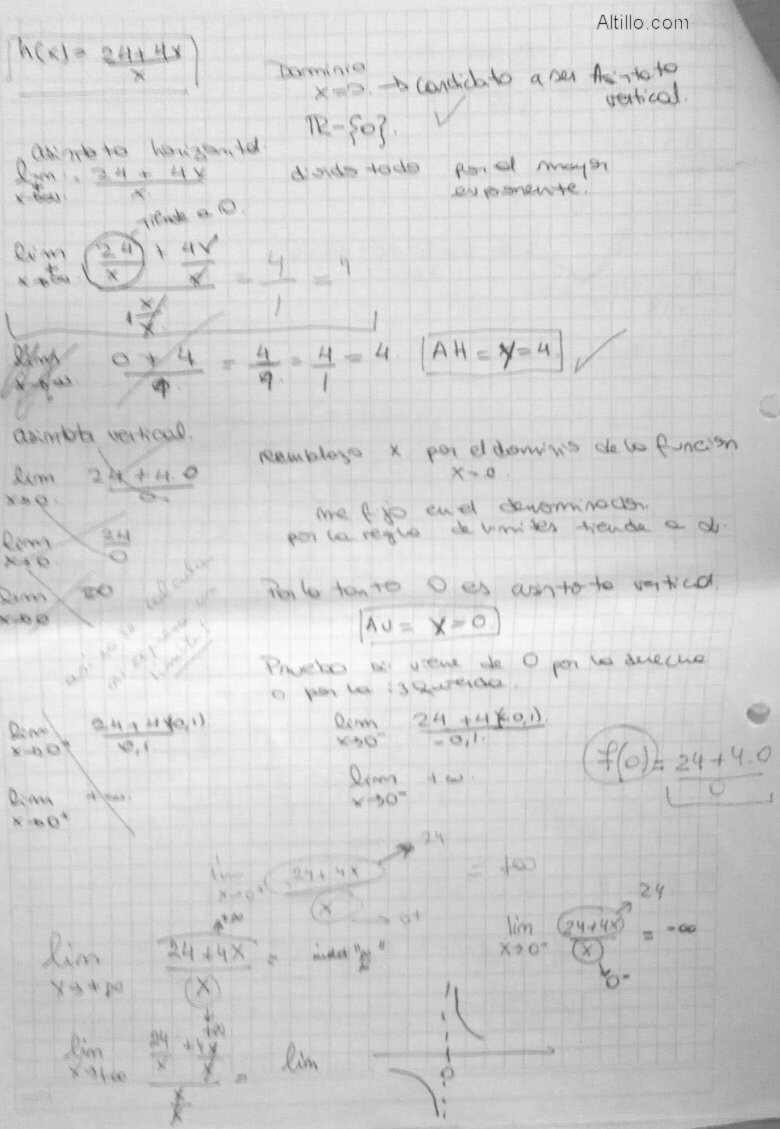 Altillo.com
h(x) = 24+4x / x
Dominio
x=0 → candidato a ser Asintota vertical.
IR-{0}.
asintota horizontal
lim x→∞ 24 + 4x / x
divido todo por el mayor
exponente.
tiende a 0
lim x→∞ 24/x + 4x/x / x/x = 4/1 = 4
lim x→∞ 0 + 4 / 1 = 4/1 = 4/1 = 4 AH = y=4
asintota vertical.
lim x→0 24+4.0 / 0
reemblazo x por el dominio de la funcion
x=0
lim x→0 24/0
me fijo en el denominador.
por la regla de limites tiende a
lim x→0 ∞
Por lo tanto 0 es asintota vertical
AV = X=0
Pruebo si viene de 0 por la derecha
o por la izquierda.
lim x→0⁺ 24+4(0,1) / 0,1
lim x→0⁻ 24+4(-0,1) / -0,1
f(0) = 24+4.0 / 0
lim x→0⁺ +∞
lim x→0⁻ +∞
lim x→0⁺ 24+4x / x = +∞
24
0+
lim x→0⁻ 24+4x / x = -∞
24
0-
lim x→+∞ 24+4x / x = indet "∞/∞"
+∞
+∞
lim x→+∞ 24/x + 4x/x / x/x = lim
0